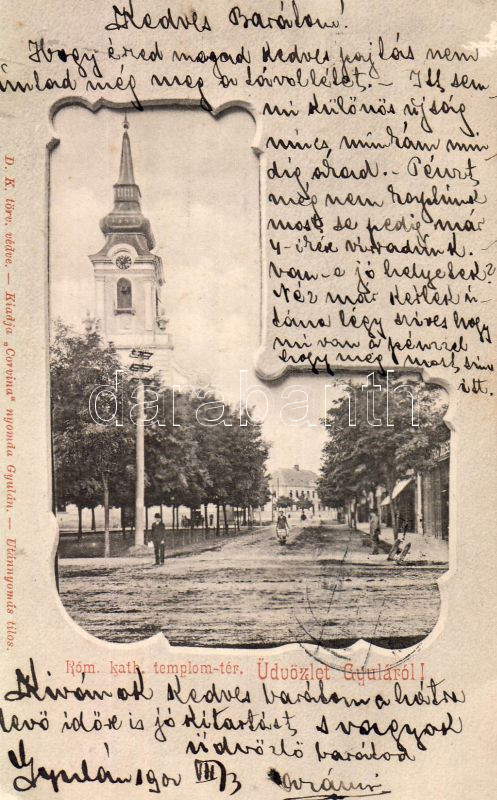 Kedves Barátom!
Hogy éred magad kedves pajtás nem
untad még meg a távollétet. - Itt sem-
mi különös ujság
nincs, minkám min
dig akad. - Pénzt
még nem kaptunk
most se pedig már
4-ikére virradunk.
Van-e jó helyetek?
Néz már
légy szives hogy
mi van a pénzzel
hogy még most sin
itt.
D. K. törv. védve. — Kiadja „Corvina" nyomda Gyulán. — Utánnyomás tilos.
darabanth
Róm. kath. templom-tér. Üdvözlet Gyuláról!
Kivánok kedves barátom a hátra
levő időre is jó kitartást, s vagyok
üdvözlő barátod
Gyulán 190 VII/3